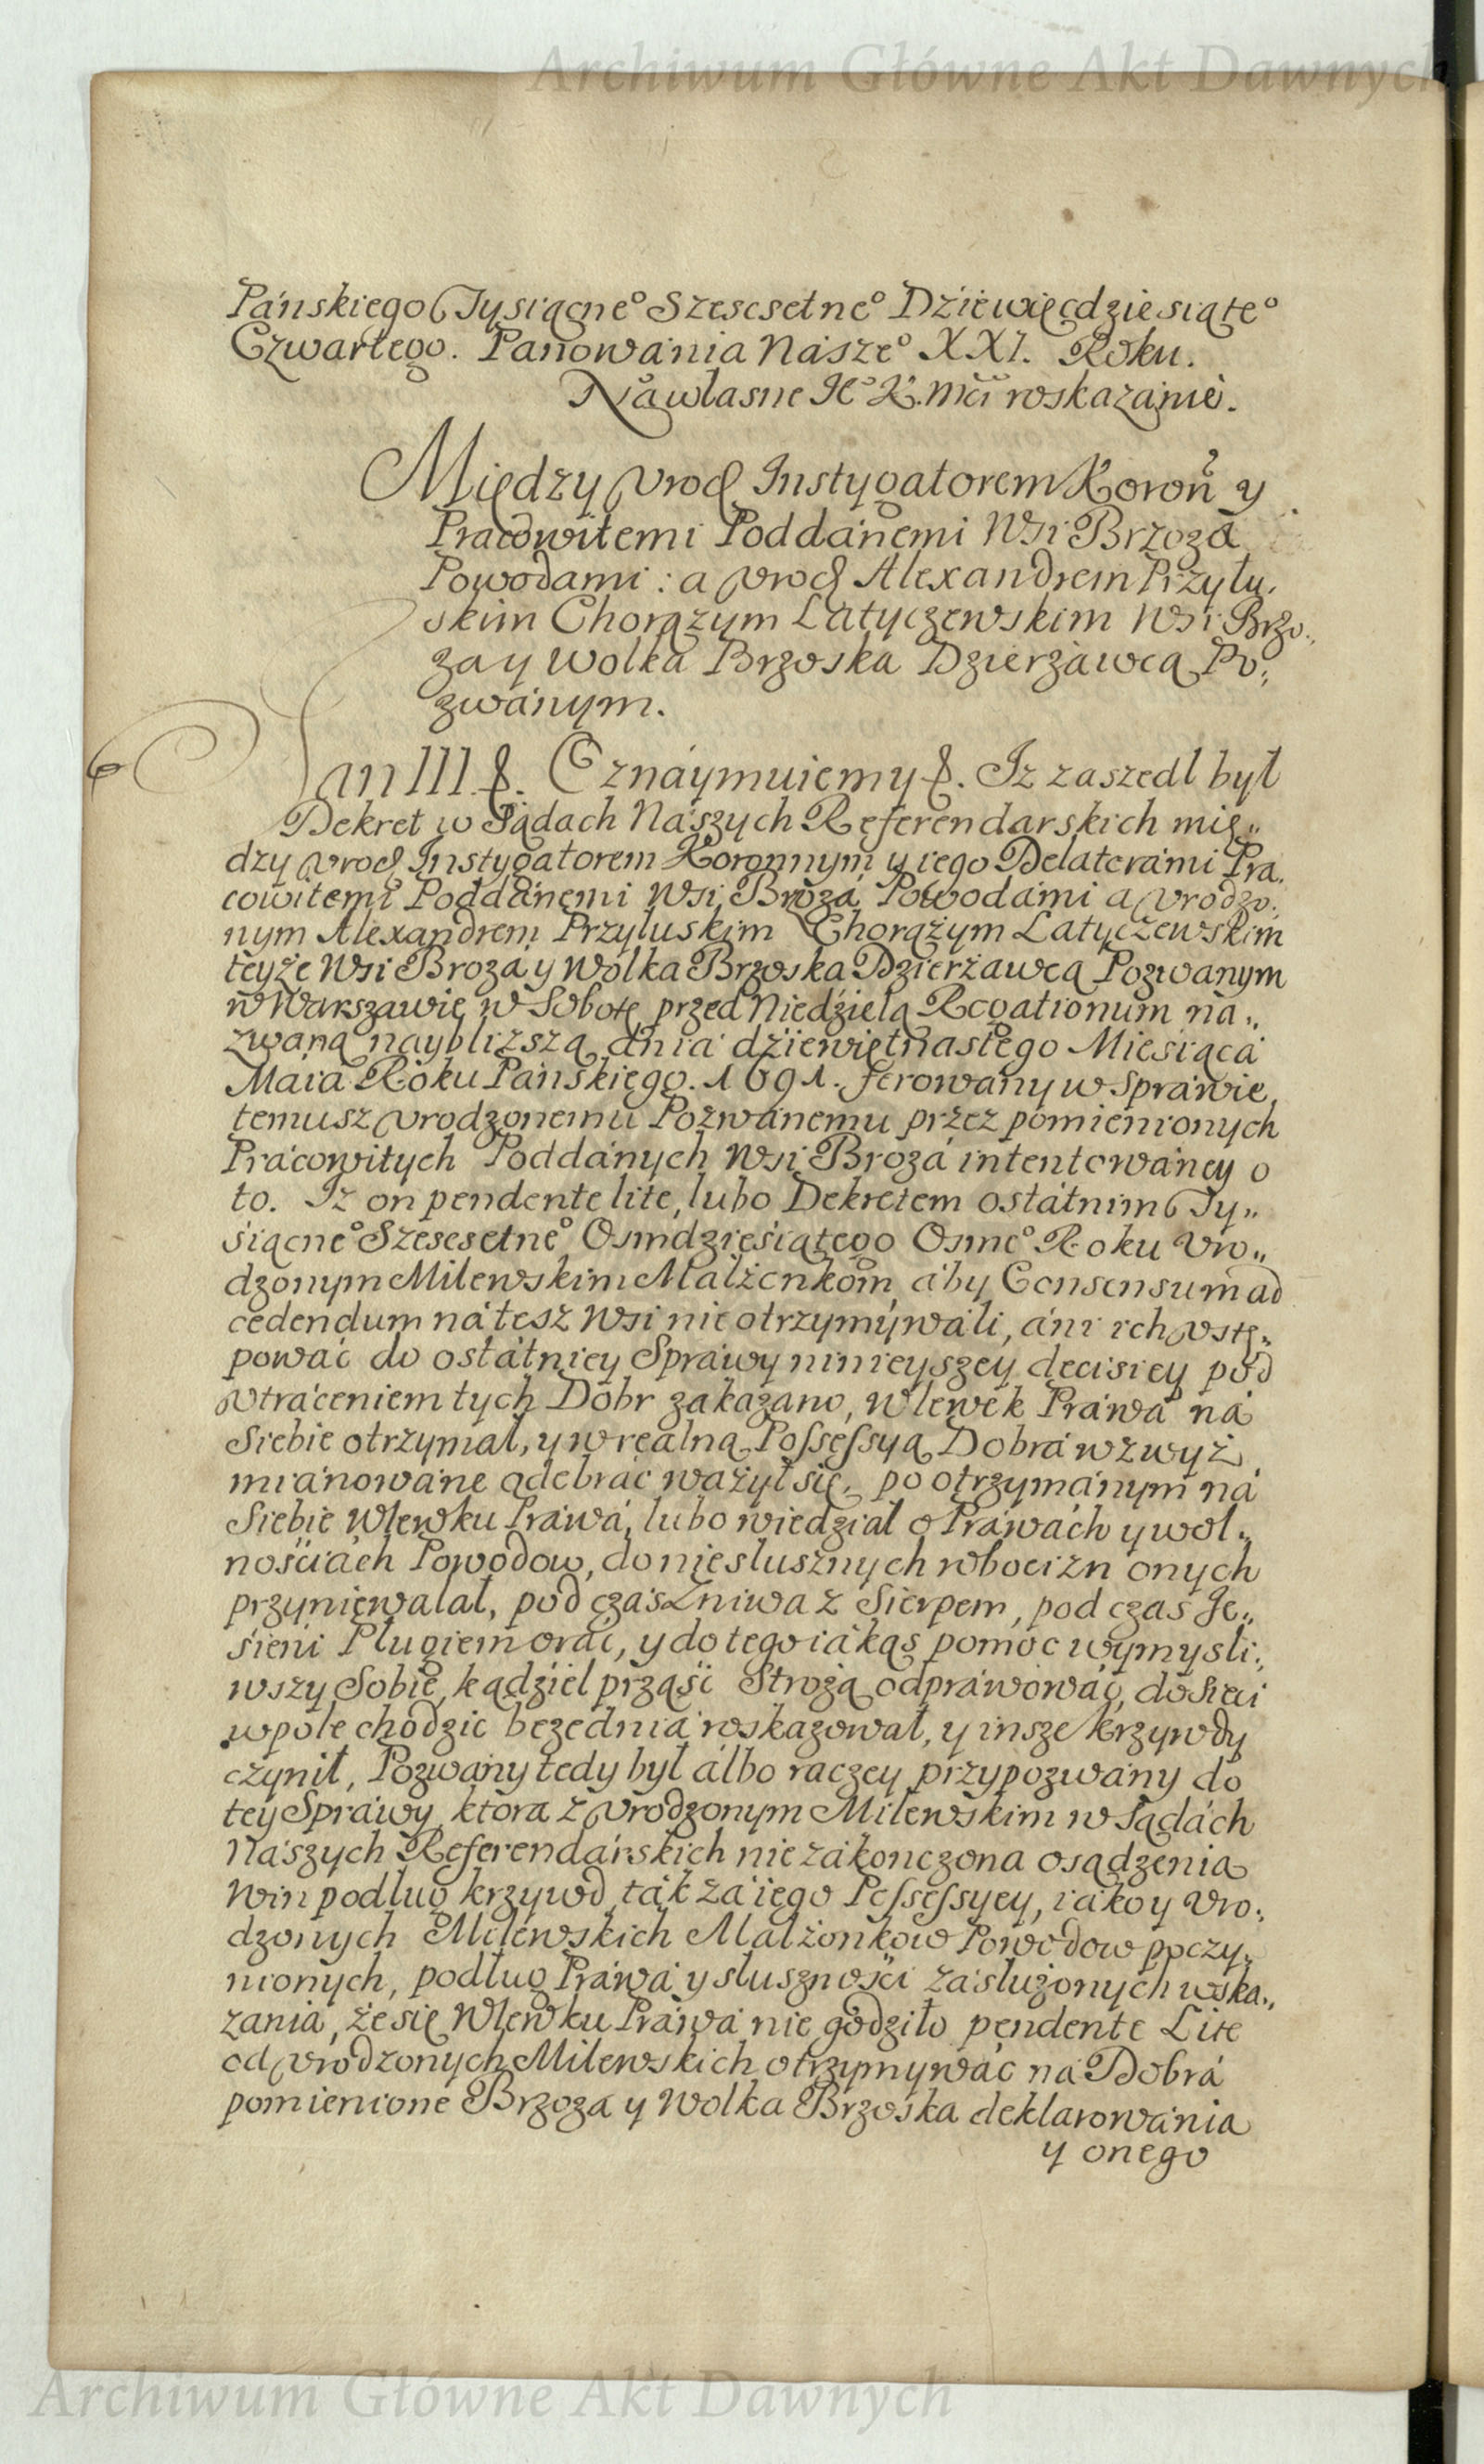 Archiwum Główne Akt Dawnych
Pánskiego Tysiącne° Szescsetne° Dźiewięcdziesiąte°
Czwartego. Pánowánia Násze° XXI. Roku.
Ná własne Je° K. Mći roskazánie.
Między Vrod Instygatorem Koroń y
Pracowitemi Poddánemi Wsi Brzozá
Powodami: a Vrod Alexandrem Przyłu,
skim Chorążym Latyczewskim Wsi Brzo„
za y Wolka Brzoska Dzierżáwcą Po„
zwánym.
Jan III &. Oznáymuiemy &. Iz zaszedl był
Dekret w Sądach Nászych Referendarskich mię„
dzy Vrod Instygatorem Koronnym y iego Delatorámi Pra,
cowitemi Poddánemi Wsi Brozá Powodámi a Vrodzo„
nym Alexandrem Przyłuskim Chorążym Latyczewskim
teyże Wsi Brozá y Wolka Brzoska Dzierżawcą Pozwanym
w Warszawie w Sobotę przed Niedźielą Rogationum ná„
zwaną naybliższą dniá dźiewiętnastego Miesiącá
Maiá Roku Pánskiego. 1691. ferowány w Spráwie,
temusz Vrodzonemu Pozwánemu przez pomienionych
Prácowitych Poddánych Wsi Brozá intentowáney o
to. Iz on pendente lite, lubo Dekretem ostátnim Ty„
śiącne° Szescsetne° Osmdzięśiątego Osme° Roku Vro„
dzonym Milewskim Małżonkom, áby Consensum ad
cedendum ná tesz Wsi nie otrzymywáli, áni ich vstę„
powáć do ostátniey Spráwy ninieyszey decisiey pod
vtráceniem tych Dobr zakazano, Wlewek Práwá ná
Siebie otrzymał, y w realną Possessyą Dobrá wzwyż
miánowáne odebráć ważył się, po otrzymánym ná
Siebie Wlewku Práwá, lubo wiedział o Práwách y wol„
nośćiách Powodow, do niesłusznych robocizn onych
przyniewalał, pod czas Żniwa z Sierpem, pod czas Je„
śieni Pługiem oráć, y do tego iákąs pomoc wymysli„
wszy Sobie, kądźiel prząść Strożą odpráwowáć, do sieći
w pole chodzić bezedniá roskazował, y insze krzywdy
czynił, Pozwány tedy był álbo raczey przypozwány do
tey Spráwy, ktora z Vrodzonym Milewskim w Sądách
Nászych Referendárskich nie zákonczona osądzenia
Win podług krzywd, ták zá iego Possessyey, iáko y Vro„
dzonych Milewskich Małżonkow Powodow poczy„
nionych, podług Práwá y słusznośći zásłużonych wska„
zánia, że się Wlewku Práwá nie godziło pendente Lite
od Vrodzonych Milewskich otrzymywáć ná Dobrá
pomienione Brzoza y Wolka Brzoska deklarowánia
y onego
Archiwum Główne Akt Dawnych